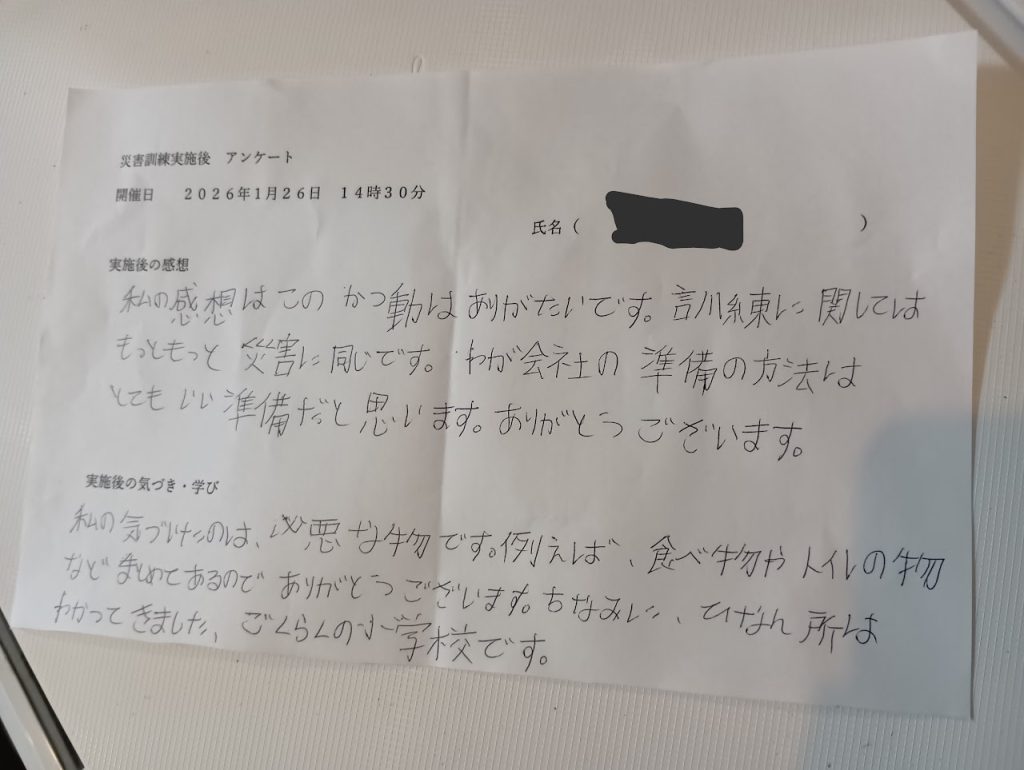 災害訓練実施後 アンケート
開催日 2026年1月26日 14時30分
氏名( )
実施後の感想
私の感想はこのかつ動はありがたいです。訓練に関しては
もっともっと災害に同じです。わが会社の準備の方法は
とてもいい準備だと思います。ありがとうございます。
実施後の気づき・学び
私の気づけたのは、必悪な物です。例えば、食べ物やトイレの物
などまとめてあるのでありがとうございます。ちなみに、ひなん所は
わかってきました、ごくらくの小学校です。